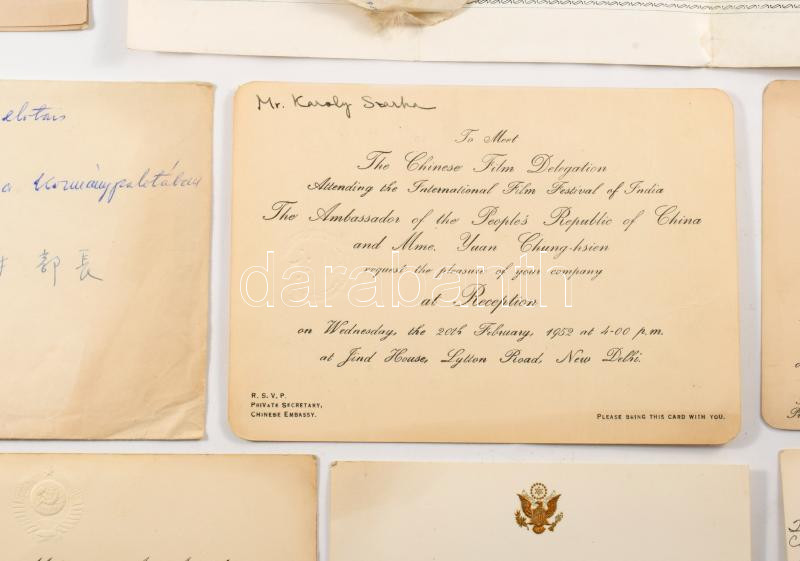 Mr. Karoly Szarka
To Meet
The Chinese Film Delegation
Attending the International Film Festival of India
The Ambassador of the People's Republic of China
and Mme. Yuan Chung-hsien
request the pleasure of your company
at Reception
on Wednesday, the 20th February, 1952 at 4-00 p.m.
at Jind House, Lytton Road, New Delhi.
R. S. V. P.
PRIVATE SECRETARY,
CHINESE EMBASSY.
PLEASE BRING THIS CARD WITH YOU.
a Kormánypalotában
部長
darabanth